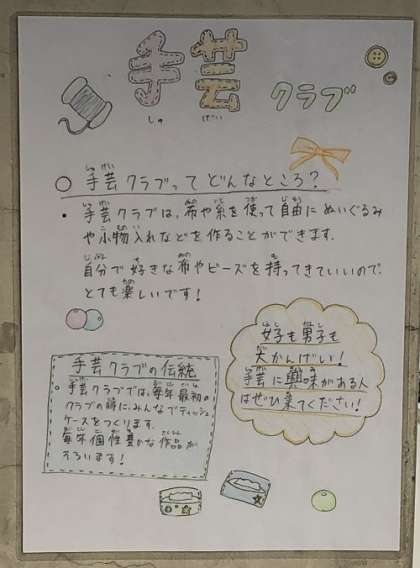 手芸クラブ
しゅ げい
○ 手芸クラブってどんなところ?
・手芸クラブは、布や糸を使って自由にぬいぐるみ
や小物入れなどを作ることができます。
自分で好きな布やビーズを持ってきていいので、
とても楽しいです!
女子も男子も
大かんげい!
手芸に興味がある人
はぜひ来てください!
手芸クラブの伝統
・手芸クラブでは、毎年最初の
クラブの時に、みんなでティッシュ
ケースをつくります。
毎年個性豊かな作品が
そろいます!